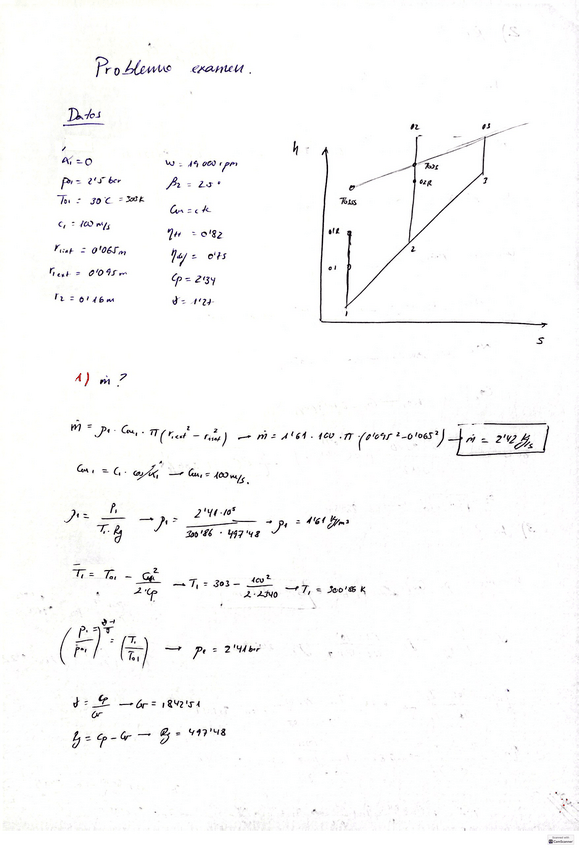 Problema examen.
Datos
α₁ = 0
p01 = 2'5 bar
T01 = 30°C = 303K
c₁ = 100 m/s
r1int = 0'065m
r1ext = 0'095m
r2 = 0'16m
w = 19000 rpm
β2 = 25°
Cm = ctk
ηtt = 0'82
Cp = 2'34
γ = 1'27
h
02
03
03R
3
2
01R
01
1
s
1) ṁ?
ṁ = ρ1 · Cm1 · π (r1ext² - r1int²) → ṁ = 1'61 · 100 · π · (0'095² - 0'065²) → ṁ = 2'42 kg/s
Cm1 = C1 · cos α1 → Cm1 = 100 m/s.
ρ1 = P1 / T1 · Rg → ρ1 = 2'41·10⁵ / 300'86 · 497'48 → ρ1 = 1'61 kg/m³
T1 = T01 - C1² / 2·Cp → T1 = 303 - 100² / 2·2340 → T1 = 300'86 K
(p1 / p01)^(γ-1/γ) = (T1 / T01) → p1 = 2'41 bar
γ = Cp / Cv → Cv = 1842'51
Rg = Cp - Cv → Rg = 497'48
CamScanner